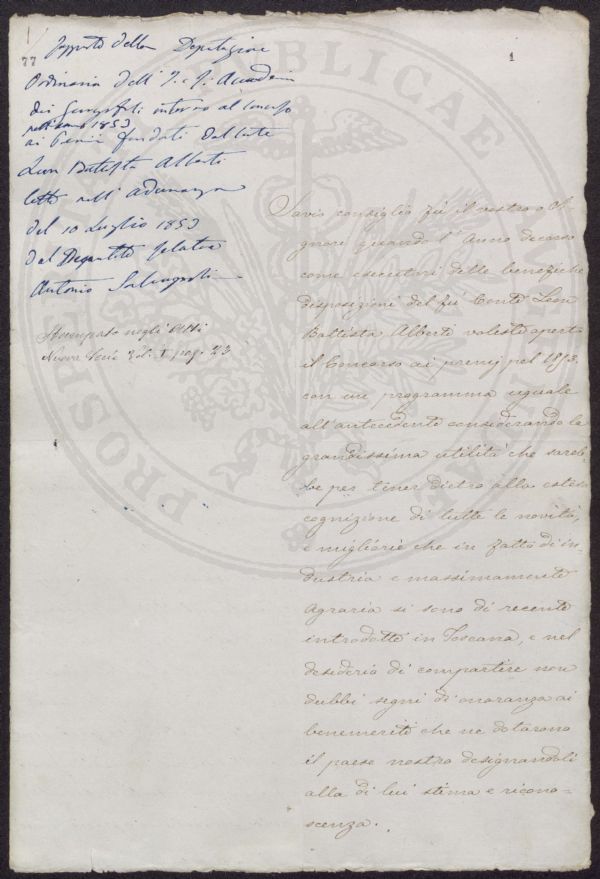 77
1
Rapporto della Deputazione
Ordinaria dell' I. e R. Accademia
dei Georgofili intorno al concorso
nell'anno 1853
ai Premi fondati dal Conte
Leon Batista Alberti
letto nell'adunanza
del 10 Luglio 1853
dal Deputato Relatore
Antonio Salvagnoli
Stampato negli Atti
Nuova Serie Vol. I pag. 23
Savio consiglio fù il vostro o Si-
gnori quando l'Anno decorso
come esecutori delle benefiche
disposizioni del fù Conte Leon
Battista Alberti voleste aperto
il Concorso ai premj pel 1853.
con un programma uguale
all'antecedente considerando la
grandissima utilità che sareb-
be per tener dietro alla estesa
cognizione di tutte le novità,
e migliorie che in fatto di in-
dustria e massimamente
Agraria si sono di recente
introdotte in Toscana, e nel
desiderio di compartire non
dubbi segni di onoranza ai
benemeriti che ne dotarono
il paese nostro designandoli
alla di lui stima e ricono-
scenza.
PROSPERITATI PUBLICAE AUGENDAE